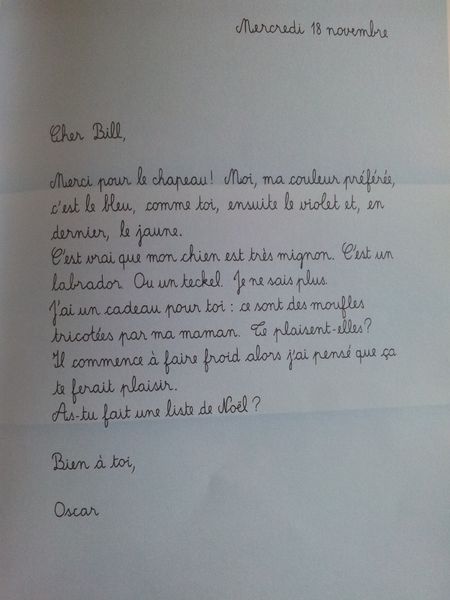 Mercredi 18 novembre
Cher Bill,
Merci pour le chapeau! Moi, ma couleur préférée,
c'est le bleu, comme toi, ensuite le violet et, en
dernier, le jaune.
C'est vrai que mon chien est très mignon. C'est un
labrador. Ou un teckel. Je ne sais plus.
J'ai un cadeau pour toi : ce sont des moufles
tricotées par ma maman. Te plaisent-elles?
Il commence à faire froid alors j'ai pensé que ça
te ferait plaisir.
As-tu fait une liste de Noël ?
Bien à toi,
Oscar